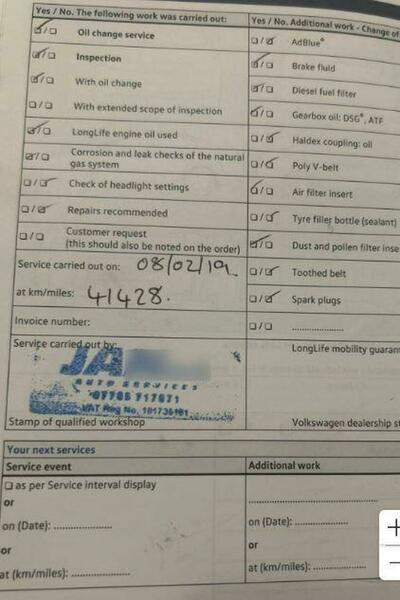 Yes / No. The following work was carried out:
Oil change service
Inspection
With oil change
With extended scope of inspection
LongLife engine oil used
Corrosion and leak checks of the natural
gas system
Check of headlight settings
Repairs recommended
Customer request
(this should also be noted on the order)
Service carried out on: 08/02/19
at km/miles: 41428.
Invoice number:
Service carried out by:
JA
AUTO SERVICES
VAT Reg No.
Stamp of qualified workshop
Yes / No. Additional work - Change of
AdBlue®
Brake fluid
Diesel fuel filter
Gearbox oil: DSG®, ATF
Haldex coupling: oil
Poly V-belt
Air filter insert
Tyre filler bottle (sealant)
Dust and pollen filter inse
Toothed belt
Spark plugs
....................
LongLife mobility guaran
Volkswagen dealership st
Your next services
Service event
☐ as per Service interval display
or
on (Date): ....................
or
at (km/miles): ....................
Additional work
....................
on (Date): ....................
or
at (km/miles): ....................